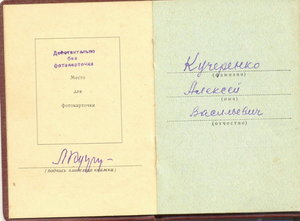 Действительно
без
фотокарточки
Место
для
фотокарточки
(подпись владельца книжки)
Кучеренко
(фамилия)
Алексей
(имя)
Васильевич
(отчество)